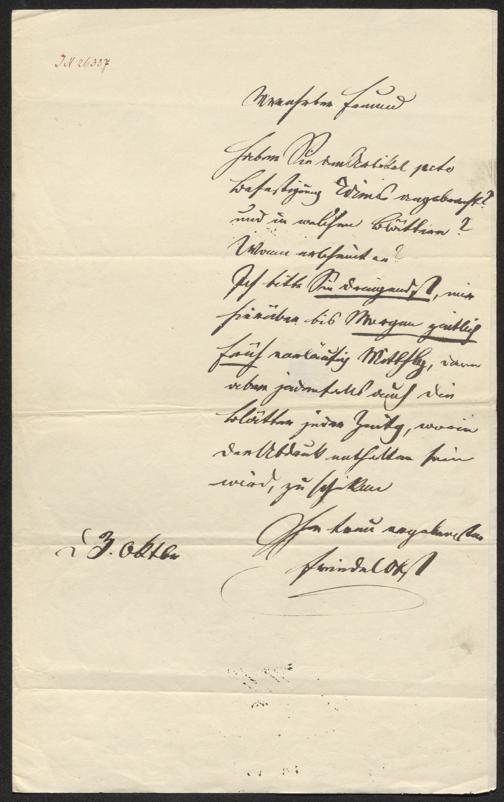 IN 26337
Verehrter Freund
Haben Sie den Artikel pcto
Befestigung Wiens angebracht?
und in welchen Blättern?
Wann erscheint er?
Ich bitte Sie dringendst, mir
hierüber bis Morgen zeitlich
früh vorläufig Mitthlg, dann
aber jedenfalls auch die
Blätter jeder Zeitg, worin
der Abdruck enthalten sein
wird, zu schicken
Ihr treu ergebenster
d 3. Oktbr